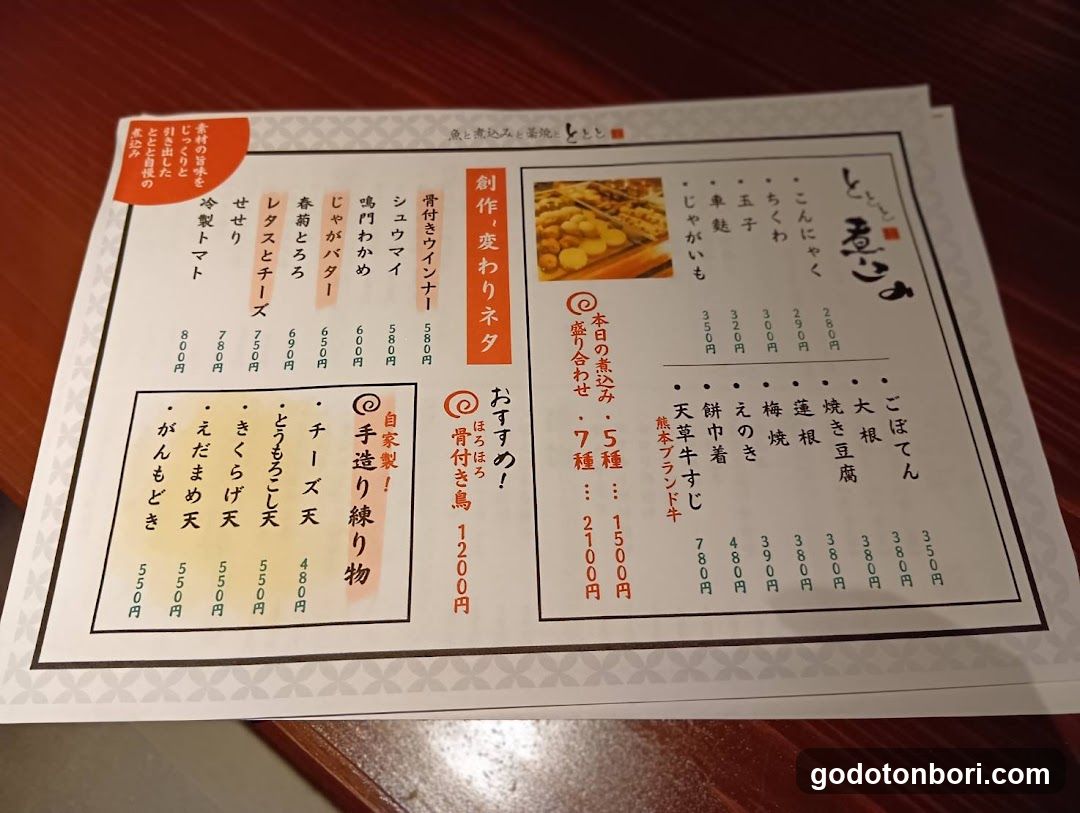 魚と煮込みと藁焼と ととと
ととと 煮込み
・こんにゃく 280円
・ちくわ 290円
・玉子 300円
・車麩 320円
・じゃがいも 350円
・ごぼてん 350円
・大根 380円
・焼き豆腐 380円
・蓮根 380円
・梅焼 380円
・えのき 390円
・餅巾着 480円
・天草牛すじ 780円
熊本ブランド牛
本日の煮込み
盛り合わせ
・5種…1500円
・7種…2100円
創作、変わりネタ
骨付きウインナー 580円
シュウマイ 580円
鳴門わかめ 600円
じゃがバター 650円
春菊とろろ 690円
レタスとチーズ 750円
せせり 780円
冷製トマト 800円
素材の旨味を
じっくりと
引き出した
ととと自慢の
煮込み
おすすめ!
ほろほろ
骨付き鳥 1200円
自家製!
手造り練り物
・チーズ天 480円
・とうもろこし天 550円
・きくらげ天 550円
・えだまめ天 550円
・がんもどき 550円
godotonbori.com